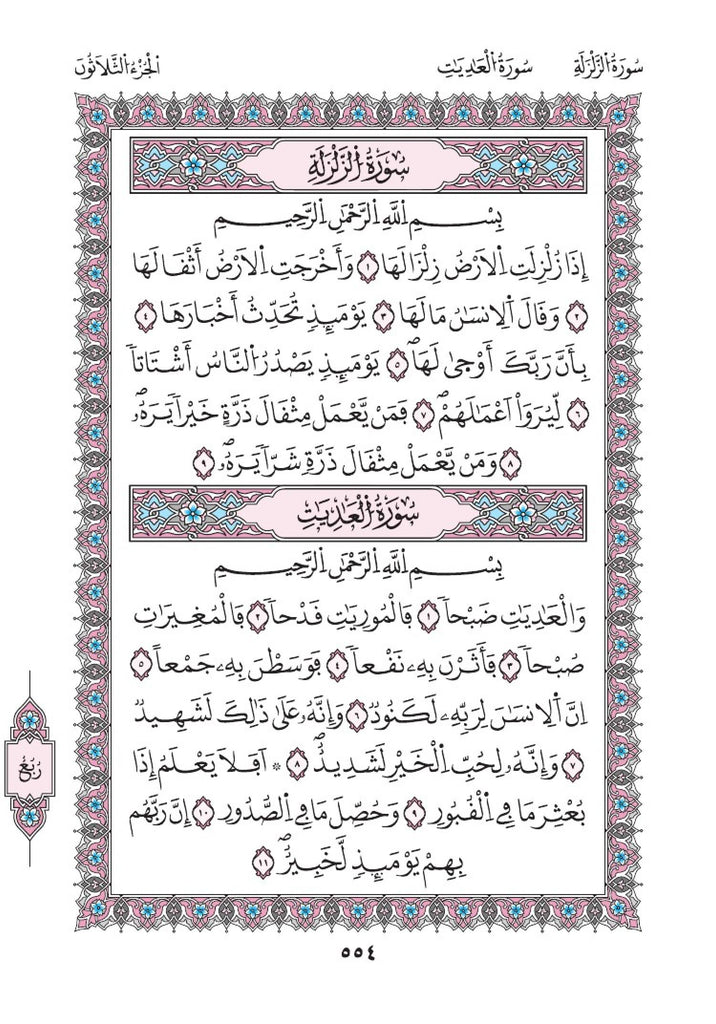 سُورَةُ الزَّلْزَلَةِ سُورَةُ الْعَٰدِيَٰتِ الْجُزْءُ الثَّلَاثُونَ
سُورَةُ الزَّلْزَلَةِ
بِسْمِ اِللَّهِ اِلرَّحْمَٰنِ اِلرَّحِيمِ
إِذَا زُلْزِلَتِ اِلَارْضُ زِلْزَالَهَا ١ وَأَخْرَجَتِ اِلَارْضُ أَثْقَالَهَا
٢ وَقَالَ اَلِانسَٰنُ مَا لَهَا ٣ يَوْمَئِذٖ تُحَدِّثُ أَخْبَارَهَا ٤
بِأَنَّ رَبَّكَ أَوْحَىٰ لَهَاۖ ٥ يَوْمَئِذٖ يَصْدُرُ اُلنَّاسُ أَشْتَاتاٗ
٦ لِّيُرَوَاْ اَعْمَٰلَهُمْۖ ٧ فَمَنْ يَّعْمَلْ مِثْقَالَ ذَرَّةٍ خَيْراٗ يَرَهُۥۖ
٨ وَمَنْ يَّعْمَلْ مِثْقَالَ ذَرَّةٖ شَرّاٗ يَرَهُۥۖ ٩
سُورَةُ الْعَٰدِيَٰتِ
بِسْمِ اِللَّهِ اِلرَّحْمَٰنِ اِلرَّحِيمِ
وَالْعَٰدِيَٰتِ ضَبْحاٗ ١ فَالْمُورِيَٰتِ قَدْحاٗ ٢ فَالْمُغِيرَٰتِ
صُبْحاٗ ٣ فَأَثَرْنَ بِهِۦ نَقْعاٗ ٤ فَوَسَطْنَ بِهِۦ جَمْعاً ٥
اِنَّ اَلِانسَٰنَ لِرَبِّهِۦ لَكَنُودٞ ٦ وَإِنَّهُۥ عَلَىٰ ذَٰلِكَ لَشَهِيدٞ
٧ وَإِنَّهُۥ لِحُبِّ اِلْخَيْرِ لَشَدِيدٌۖ ٨ ۞ اَفَلَا يَعْلَمُ إِذَا
بُعْثِرَ مَا فِي اِلْقُبُورِ ٩ وَحُصِّلَ مَا فِي اِلصُّدُورِ ١٠ إِنَّ رَبَّهُم
بِهِمْ يَوْمَئِذٖ لَّخَبِيرٞۖ ١١
رُبُعٌ
٥٥٤